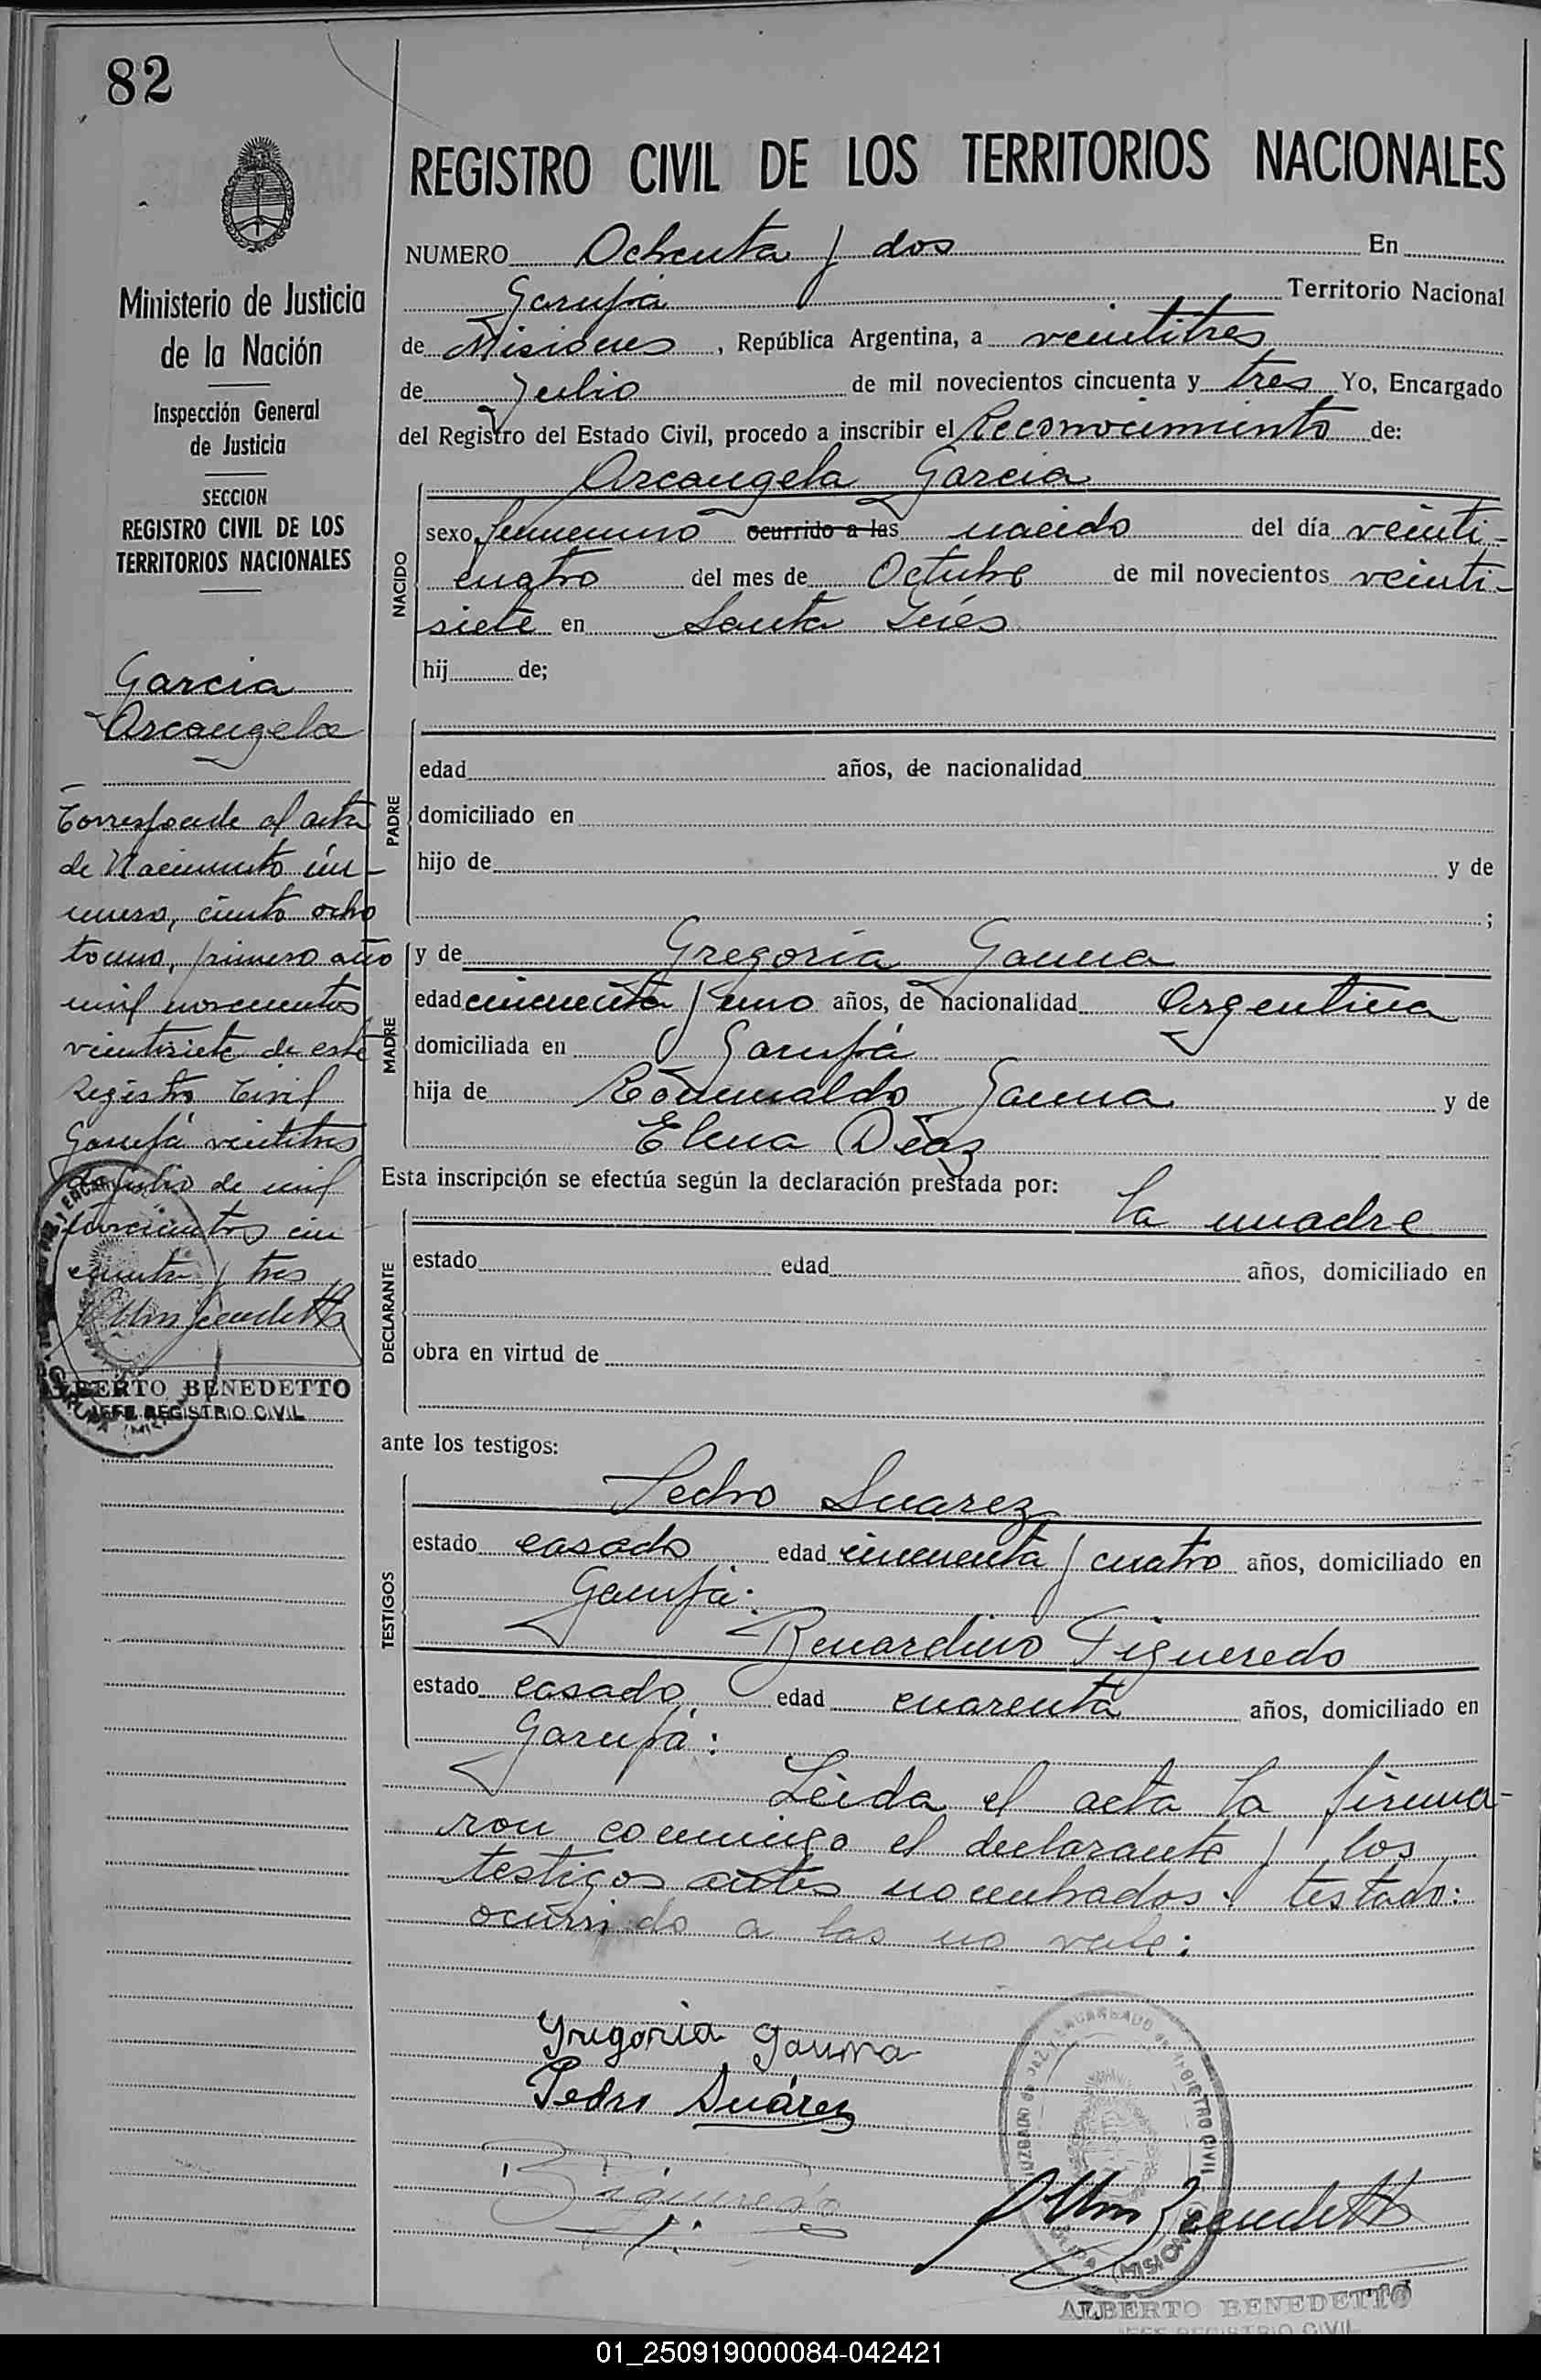 82
REGISTRO CIVIL DE LOS TERRITORIOS NACIONALES
Ministerio de Justicia
de la Nación
Inspección General
de Justicia
SECCION
REGISTRO CIVIL DE LOS
TERRITORIOS NACIONALES
Garcia
Arcangela
Corresponde al acta
de Nacimiento nú-
mero, ciento ocho
tomo, primero año
mil novecientos
veintisiete de este
Registro Civil
Garupá veintitres
de Julio de mil
novecientos cin
cuenta y tres
ALBERTO BENEDETTO
JEFE REGISTRO CIVIL
NUMERO Ochenta y dos En
Garupá Territorio Nacional
de Misiones, República Argentina, a veintitres
de Julio de mil novecientos cincuenta y tres Yo, Encargado
del Registro del Estado Civil, procedo a inscribir el Reconocimiento de:
NACIDO
Arcangela Garcia
sexo femenino ocurrido a las nacido del día veinti-
cuatro del mes de Octubre de mil novecientos veinti-
siete en Santa Inés
hij de;
PADRE
edad años, de nacionalidad
domiciliado en
hijo de y de
;
MADRE
y de Gregoria Gauna
edad cincuenta y uno años, de nacionalidad Argentina
domiciliada en Garupá
hija de Romualdo Gauna y de
Elena Diaz
Esta inscripción se efectúa según la declaración prestada por:
DECLARANTE
La madre
estado edad años, domiciliado en
obra en virtud de
ante los testigos:
TESTIGOS
Pedro Suarez
estado casado edad cincuenta y cuatro años, domiciliado en
Garupá.
Benardino Figueredo
estado casado edad cuarenta años, domiciliado en
Garupá:
Leida el acta la firma-
ron conmigo el declarante y los
testigos antes nombrados: testado:
ocurrido a las no vale:
Gregoria Gauna
Pedro Suárez
B Figueredo
JUZGADO DE PAZ Y ENCARGADO DE REGISTRO CIVIL
(MISIONES)
ALBERTO BENEDETTO
JEFE REGISTRO CIVIL
01_250919000084-042421